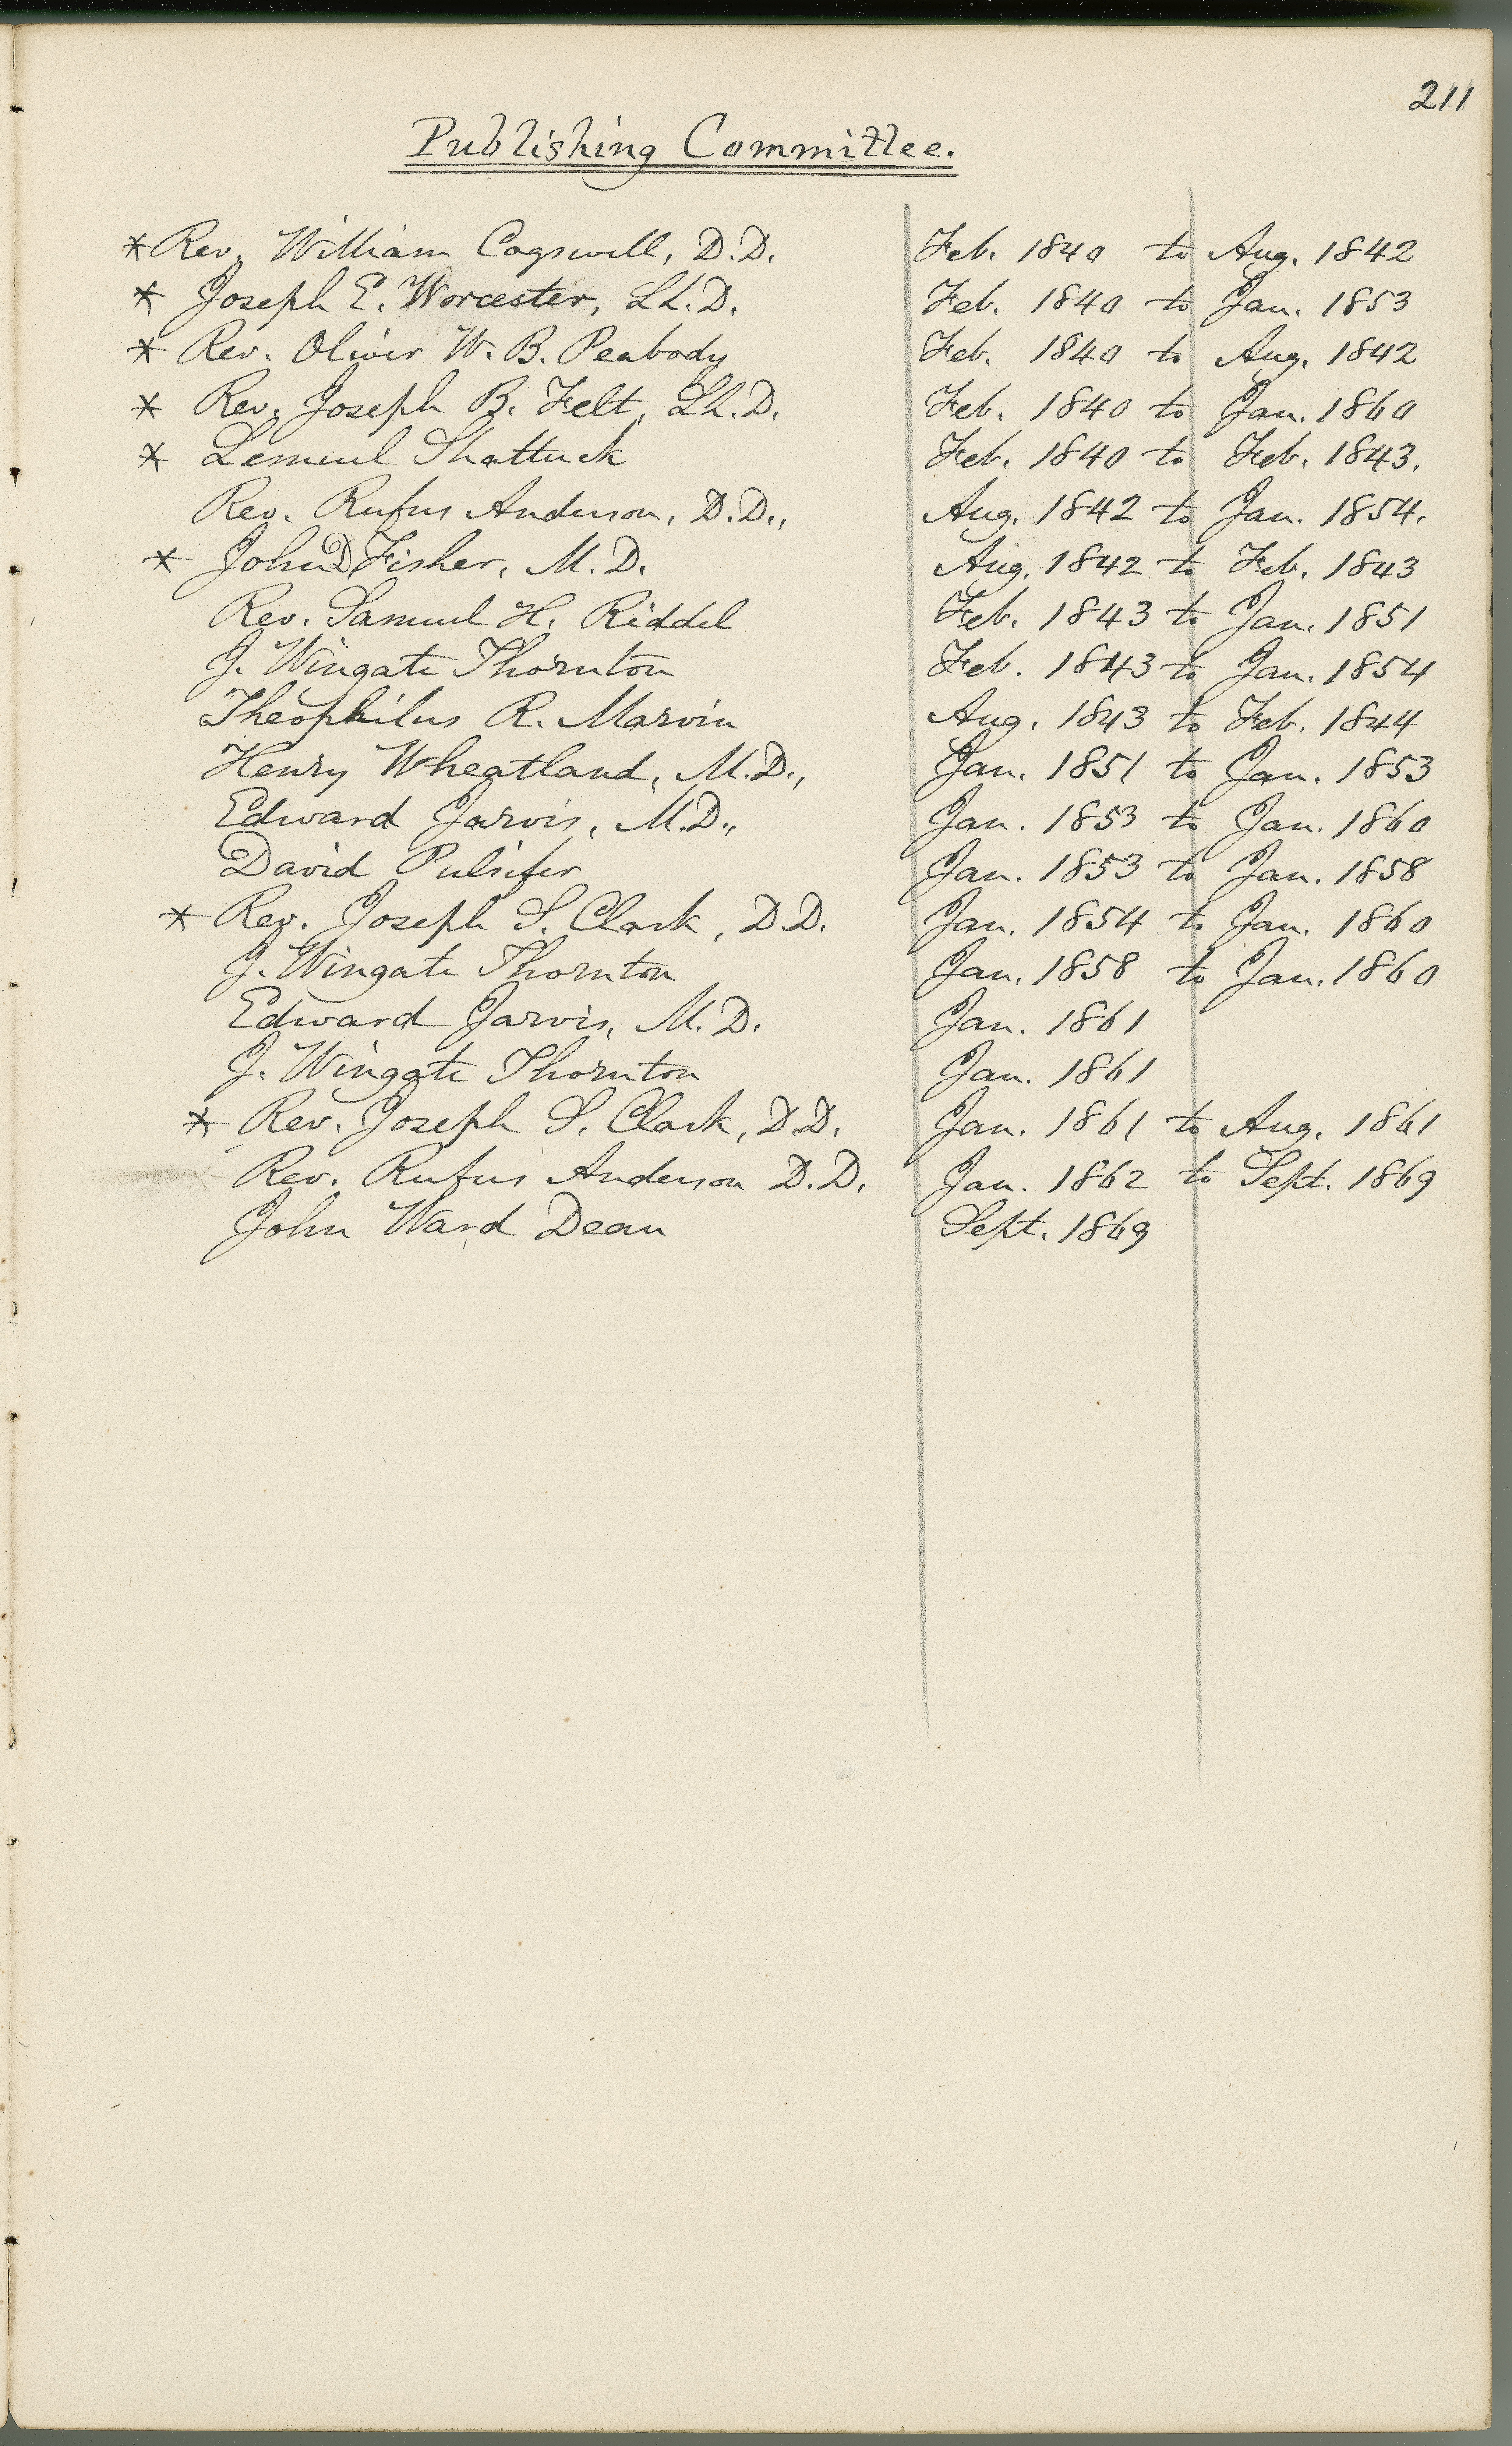 211
Publishing Committee.
* Rev. William Cogswell, D.D. Feb. 1840 to Aug. 1842
* Joseph E. Worcester, LL.D. Feb. 1840 to Jan. 1853
* Rev. Oliver W. B. Peabody Feb. 1840 to Aug. 1842
* Rev. Joseph B. Felt, LL.D. Feb. 1840 to Jan. 1860
* Lemuel Shattuck Feb. 1840 to Feb. 1843.
Rev. Rufus Anderson, D.D., Aug. 1842 to Jan. 1854.
* John D Fisher, M.D. Aug. 1842 to Feb. 1843
Rev. Samuel H. Riddel Feb. 1843 to Jan. 1851
J. Wingate Thornton Feb. 1843 to Jan. 1854
Theophilus R. Marvin Aug. 1843 to Feb. 1844
Henry Wheatland, M.D., Jan. 1851 to Jan. 1853
Edward Jarvis, M.D., Jan. 1853 to Jan. 1860
David Pulsifer Jan. 1853 to Jan. 1858
* Rev. Joseph S. Clark, D.D. Jan. 1854 to Jan. 1860
J. Wingate Thornton Jan. 1858 to Jan. 1860
Edward Jarvis, M.D. Jan. 1861
J. Wingate Thornton Jan. 1861
* Rev. Joseph S. Clark, D.D. Jan. 1861 to Aug. 1861
Rev. Rufus Anderson D.D. Jan. 1862 to Sept. 1869
John Ward Dean Sept. 1869